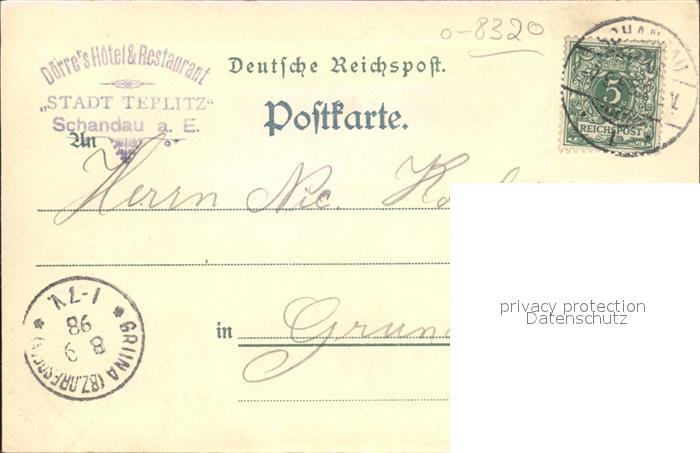 o-8320
Dörre's Hôtel & Restaurant
„STADT TEPLITZ"
Schandau a. E.
Deutsche Reichspost.
Postkarte.
5
REICHSPOST
An
Herrn Nic.
privacy protection
Datenschutz
in
GRUNA (BZ. DRESDEN)
8 9
98
7-8 V.